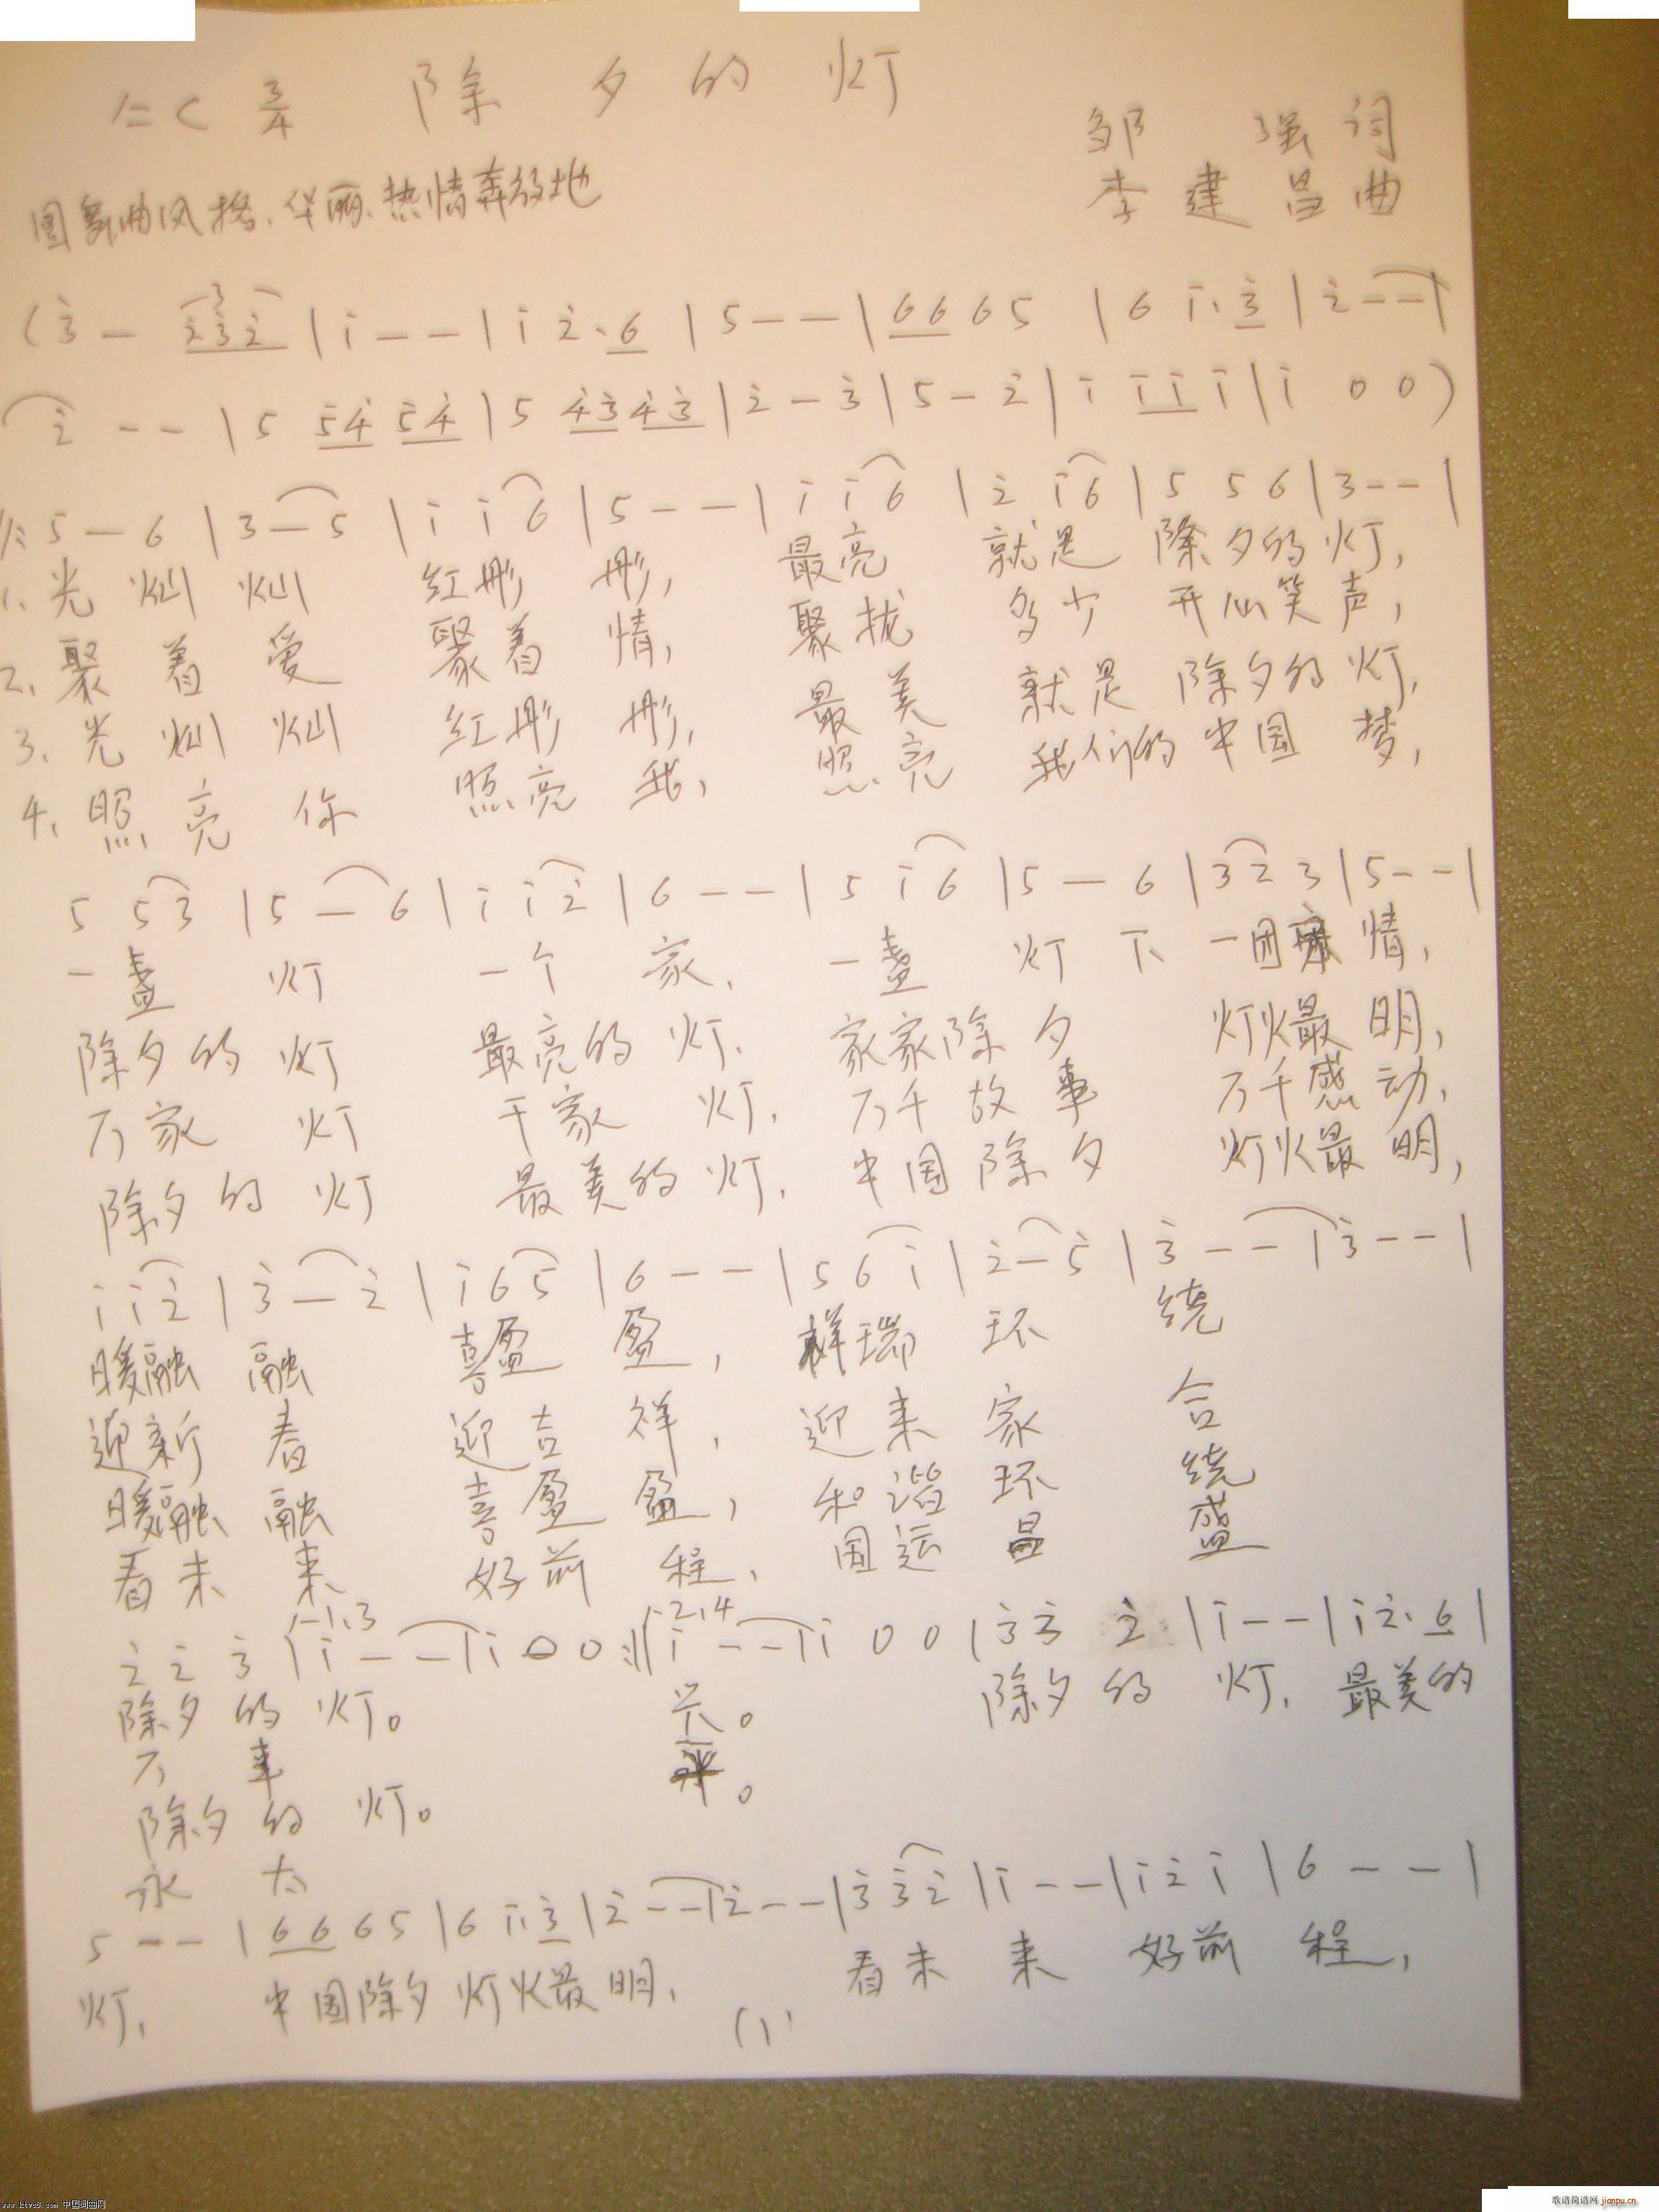 1=C 3/4 除夕的灯
邹强词
圆舞曲风格、华丽、热情奔放地
李建昌曲
(3̇ — 2̇3̇2̇ | i — — | i 2̇. 6 | 5 — — | 6 6 6 5 | 6 i. 3̇ | 2̇ — — |
2̇ — — | 5 5̇4̇ 5̇4̇ | 5 4̇3̇ 4̇3̇ | 2̇ — 3̇ | 5 — 2̇ | i i i i | i 0 0)
5 — 6 | 3 — 5 | i i 6 | 5 — — | i i 6 | 2̇ i 6 | 5 5 6 | 3 — — |
1、光灿灿 红彤彤, 最亮就是除夕的灯,
2、聚着爱 聚着情, 聚拢多少开心笑声,
3、光灿灿 红彤彤, 最美就是除夕的灯,
4、照亮你 照亮我, 照亮我们的中国梦,
5 5 3 | 5 — 6 | i i 2̇ | 6 — — | 5 i 6 | 5 — 6 | 3 2 3 | 5 — — |
一盏灯 一个家、 一盏灯下一团情,
除夕的灯 最亮的灯、 家家除夕 灯火最明,
万家灯 千家灯、 万千故事 万千感动,
除夕的灯 最美的灯、 中国除夕 灯火最明,
i i 2̇ | 3̇ — 2̇ | i 6 5 | 6 — — | 5 6 i | 2̇ — 5 | 3̇ — — | 3̇ — — |
暖融融 喜盈盈, 祥瑞环绕
迎新春 迎吉祥, 迎来家合
暖融融 喜盈盈, 和谐环绕
看未来 好前程、 国运昌盛
1.3 2.4
2̇ 2̇ 3̇ | i — — | i 0 0 :‖ i — — | i 0 0 | 3̇ 3̇ 2̇ | i — — | i 2̇. 6 |
除夕的灯。 兴。 除夕的灯、最美的
万事 平。
除夕的灯。
永太
5 — — | 6 6 6 5 | 6 i. 3̇ | 2̇ — — | 2̇ — — | 3̇ 3̇ 2̇ | i — — | i 2̇ i | 6 — — |
灯、 中国除夕灯火最明、 看未来 好前程,
(1)
www.ktvc8.com 中国词曲网
歌谱简谱网 jianpu.cn